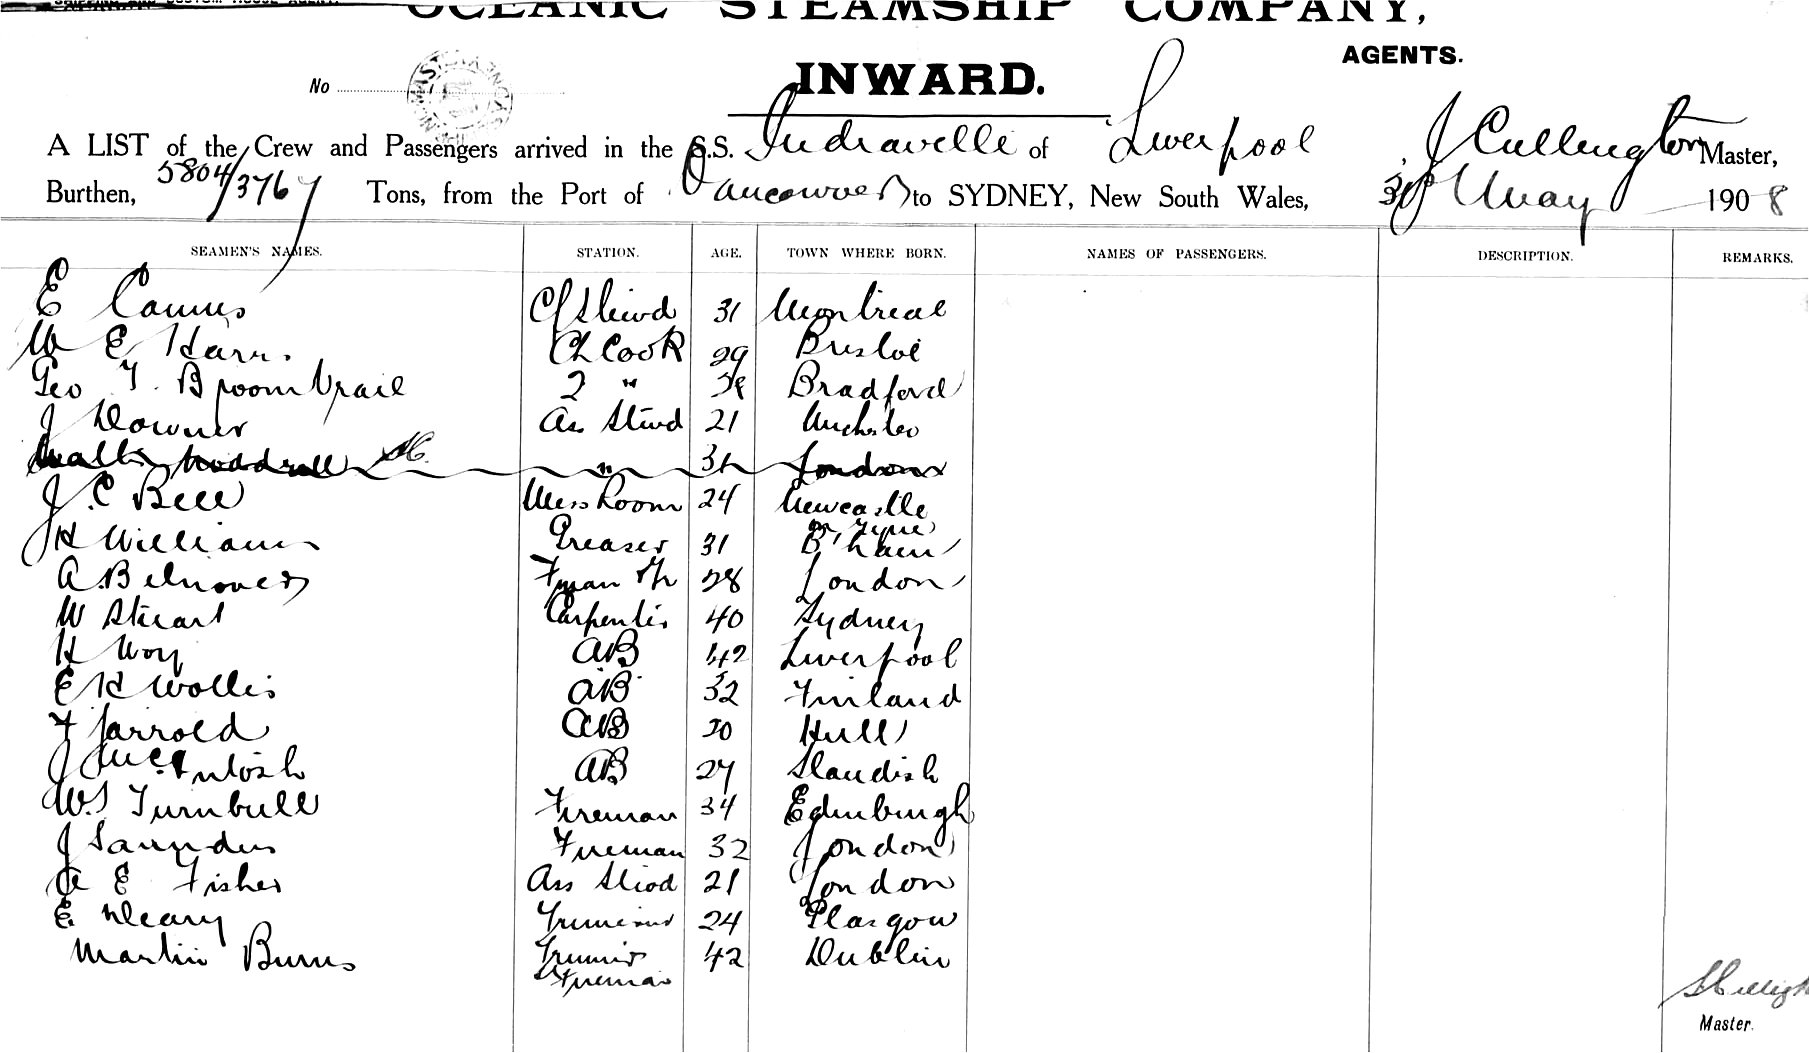 OCEANIC STEAMSHIP COMPANY,
AGENTS.
No
INWARD.
A LIST of the Crew and Passengers arrived in the S.S. Indravelli of Liverpool J Cullington Master,
Burthen, 5804/3767 Tons, from the Port of Vancouver to SYDNEY, New South Wales, May 1908
SEAMEN'S NAMES. STATION. AGE. TOWN WHERE BORN. NAMES OF PASSENGERS. DESCRIPTION. REMARKS.
E Camus Cf Stewd 31 Montreal
W E Harr. Ch Cook 29 Bristol
Geo T. Broom 2 "  Bradford
J Downer As Stewd 21
" London
J. C Bell Mess Room 24 Newcastle
on Tyne
J H Williams Greaser 31 B'ham
A. 28 London
W Stewart Carpenter 40 Sydney
H Woy AB 42 Liverpool
E H Wollis AB 32 Finland
F Jarrold AB 30 Hull
J McIntosh AB 27 Standish
W.S Turnbull Fireman 34 Edinburgh
J Saunders Fireman 32 London
A E Fisher Ass Stewd 21 London
E Deary Trimmer 24 Glasgow
Martin Burns Trimmer 42 Dublin
Fireman
Master.